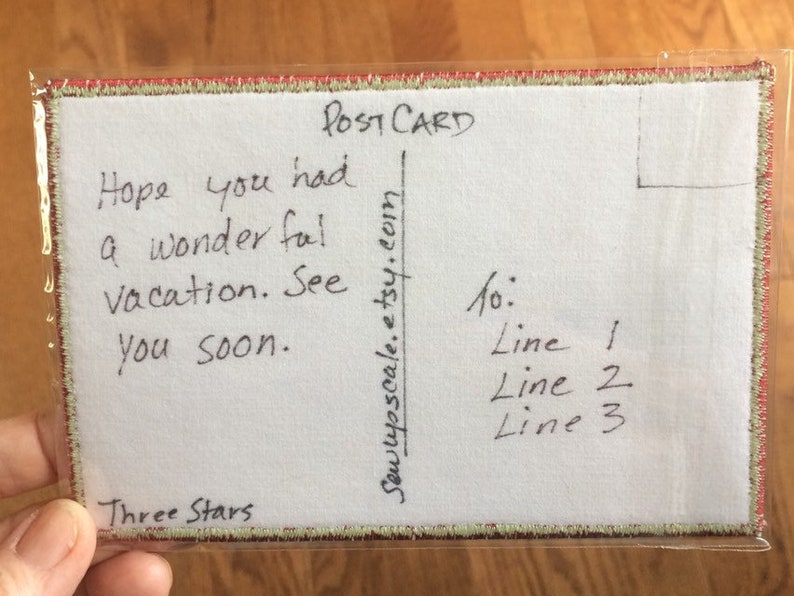 POSTCARD
Hope you had
a wonderful
vacation. See
you soon.
Three Stars
sewupscale.etsy.com
To:
Line 1
Line 2
Line 3